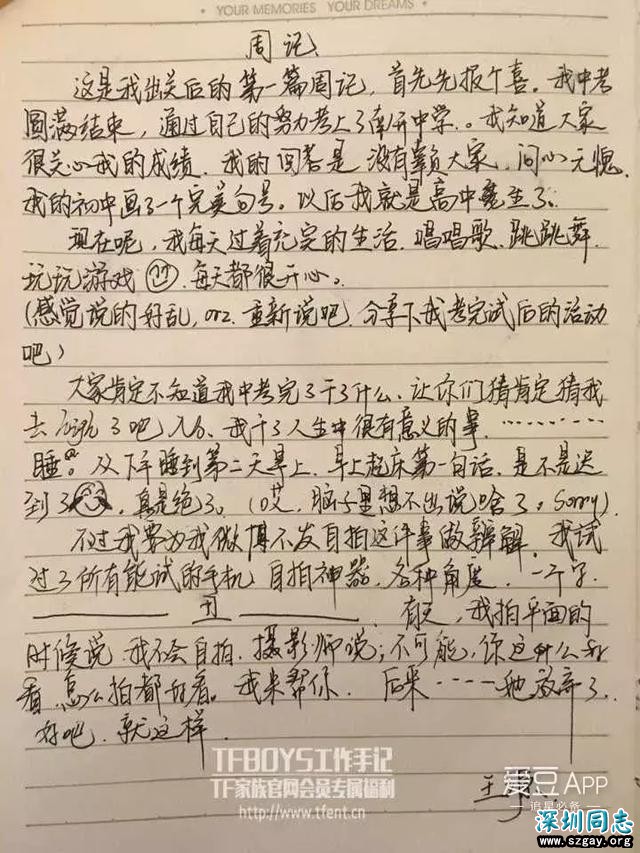 YOUR MEMORIES YOUR DREAMS
周记
这是我出关后的第一篇周记,首先先报个喜。我中考
圆满结束,通过自己的努力考上了南开中学。我知道大家
很关心我的成绩.我的回答是没有辜负大家.问心无愧.
我的初中画了一个完美句号。以后我就是高中生了。
现在呢,我每天过着充实的生活.唱唱歌.跳跳舞.
玩玩游戏 每天都很开心。
(感觉说的好乱,orz.重新说吧.分享下我考完试后的活动
吧)
大家肯定不知道我中考完了干了什么.让你们猜肯定猜我
去 了吧 我干了人生中很有意义的事.………
睡。从下午睡到第二天早上.早上起床第一句话.是不是迟
到了 ,真是绝了。(哎,脑子里想不出说啥了。Sorry)
不过我要为我微博不发自拍这件事做辩解.我试
过了所有能试的手机.自拍神器.各种角度.一个字.
丑 有天,我拍平面的
时候说.我不会自拍.摄影师说;不可能,你这种么好
看,怎么拍都好看。我来帮你.后来……她放弃了.
好吧.就这样.
TFBOYS工作手记
TF家族官网会员专属福利
http://www.tfent.cn
爱豆APP
追星必备
深圳同志
www.szgay.org